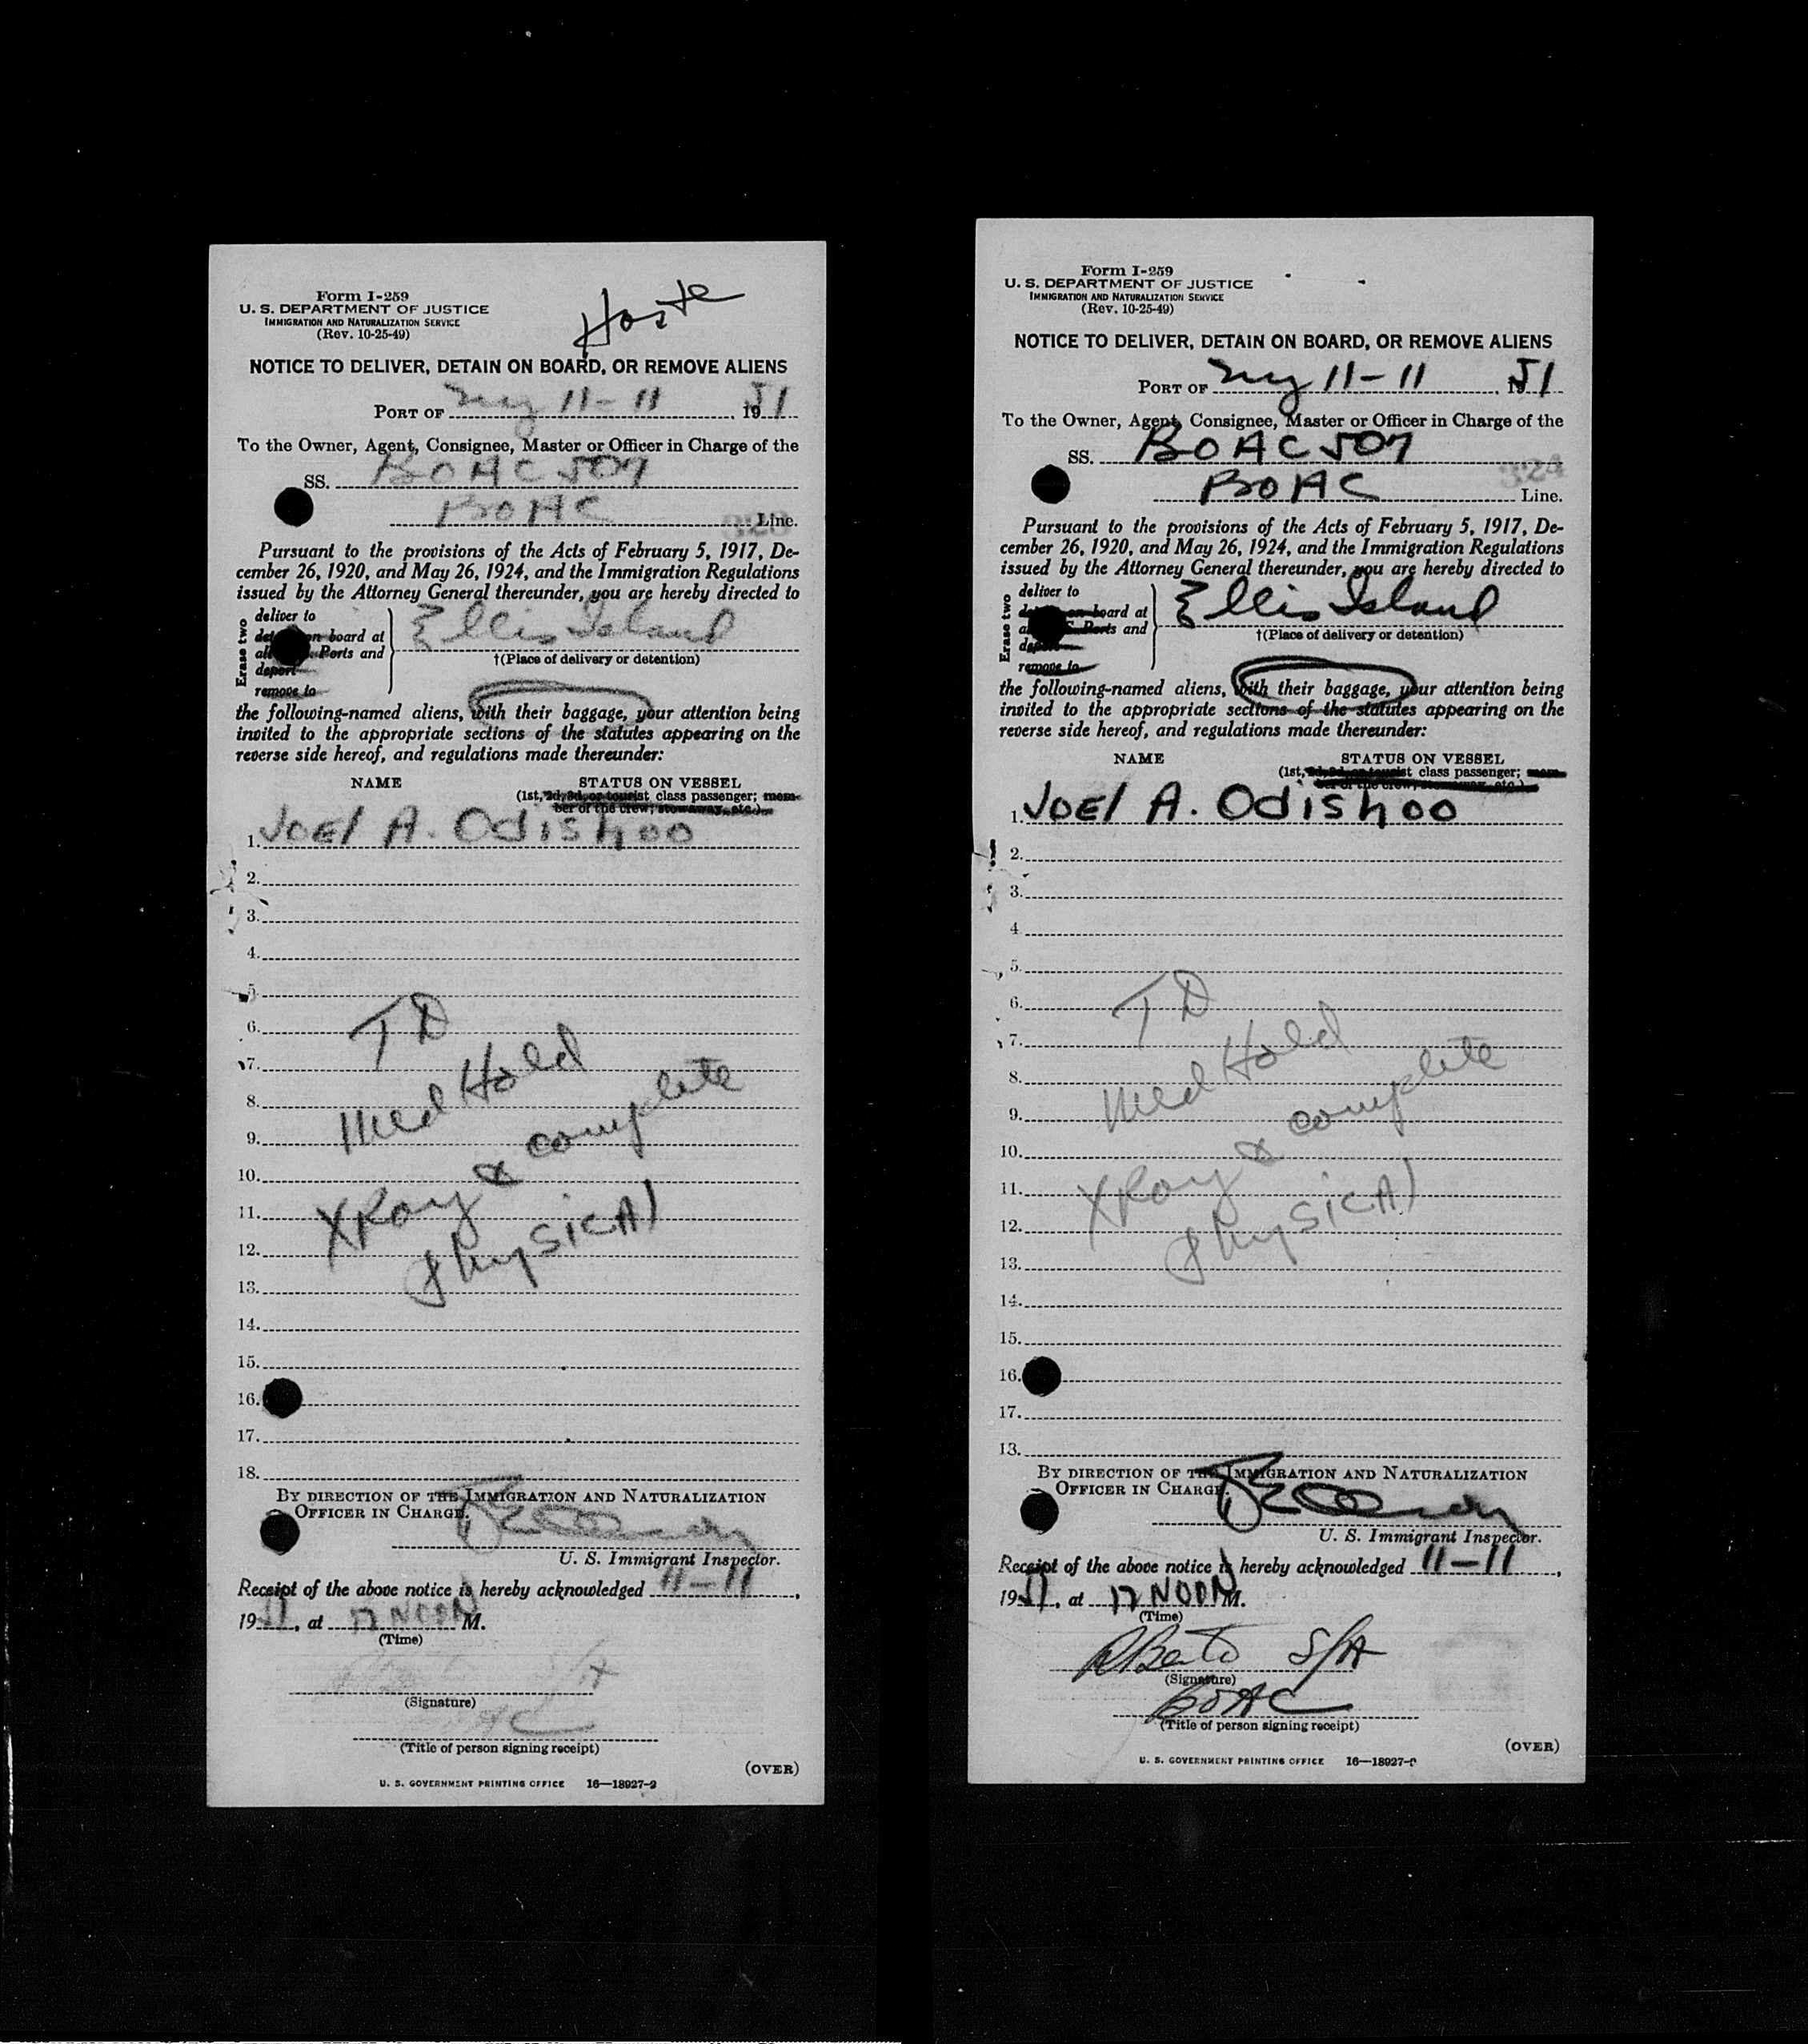 Form I-259
U. S. DEPARTMENT OF JUSTICE
IMMIGRATION AND NATURALIZATION SERVICE
(Rev. 10-25-49)
NOTICE TO DELIVER, DETAIN ON BOARD, OR REMOVE ALIENS
PORT OF NY 11-11, 1951
To the Owner, Agent, Consignee, Master or Officer in Charge of the
SS. BOAC 507
BOAC Line.
Pursuant to the provisions of the Acts of February 5, 1917, De-
cember 26, 1920, and May 26, 1924, and the Immigration Regulations
issued by the Attorney General thereunder, you are hereby directed to
Erase two
deliver to
on board at
Ports and
deport
remove to
Ellis Island
†(Place of delivery or detention)
the following-named aliens, with their baggage, your attention being
invited to the appropriate sections of the statutes appearing on the
reverse side hereof, and regulations made thereunder:
NAME STATUS ON VESSEL
(1st, 2d, 3d, or tourist class passenger; mem-
ber of the crew; stowaway, etc.)
1. Joel A. Odishoo
2.
3.
4.
5.
6. TD
7.
8. Med Hold
9.
10. XRay & complete
11.
12. Physical
13.
14.
15.
16.
17.
18.
BY DIRECTION OF THE IMMIGRATION AND NATURALIZATION
OFFICER IN CHARGE.
U. S. Immigrant Inspector.
Receipt of the above notice is hereby acknowledged 11-11,
1951, at 12 NOON M.
(Time)
S/A
(Signature)
(Title of person signing receipt)
(OVER)
U. S. GOVERNMENT PRINTING OFFICE 16—18927-2
Form I-259
U. S. DEPARTMENT OF JUSTICE
IMMIGRATION AND NATURALIZATION SERVICE
(Rev. 10-25-49)
NOTICE TO DELIVER, DETAIN ON BOARD, OR REMOVE ALIENS
PORT OF NY 11-11, 1951
To the Owner, Agent, Consignee, Master or Officer in Charge of the
SS. BOAC 507
324
BOAC Line.
Pursuant to the provisions of the Acts of February 5, 1917, De-
cember 26, 1920, and May 26, 1924, and the Immigration Regulations
issued by the Attorney General thereunder, you are hereby directed to
Erase two
deliver to
on board at
Ports and
remove to
Ellis Island
†(Place of delivery or detention)
the following-named aliens, with their baggage, your attention being
invited to the appropriate sections of the statutes appearing on the
reverse side hereof, and regulations made thereunder:
NAME STATUS ON VESSEL
(1st, 2d, 3d, or tourist class passenger; mem-
ber of the crew; stowaway, etc.)
1. Joel A. Odishoo
2.
3.
4.
5.
6. TD
7.
8. Med Hold
9.
10. XRay & complete
11.
12. Physical
13.
14.
15.
16.
17.
13.
BY DIRECTION OF THE IMMIGRATION AND NATURALIZATION
OFFICER IN CHARGE.
U. S. Immigrant Inspector.
Receipt of the above notice is hereby acknowledged 11-11,
1951, at 12 NOON M.
(Time)
S/A
(Signature)
BOAC
(Title of person signing receipt)
(OVER)
U. S. GOVERNMENT PRINTING OFFICE 16—18927-2